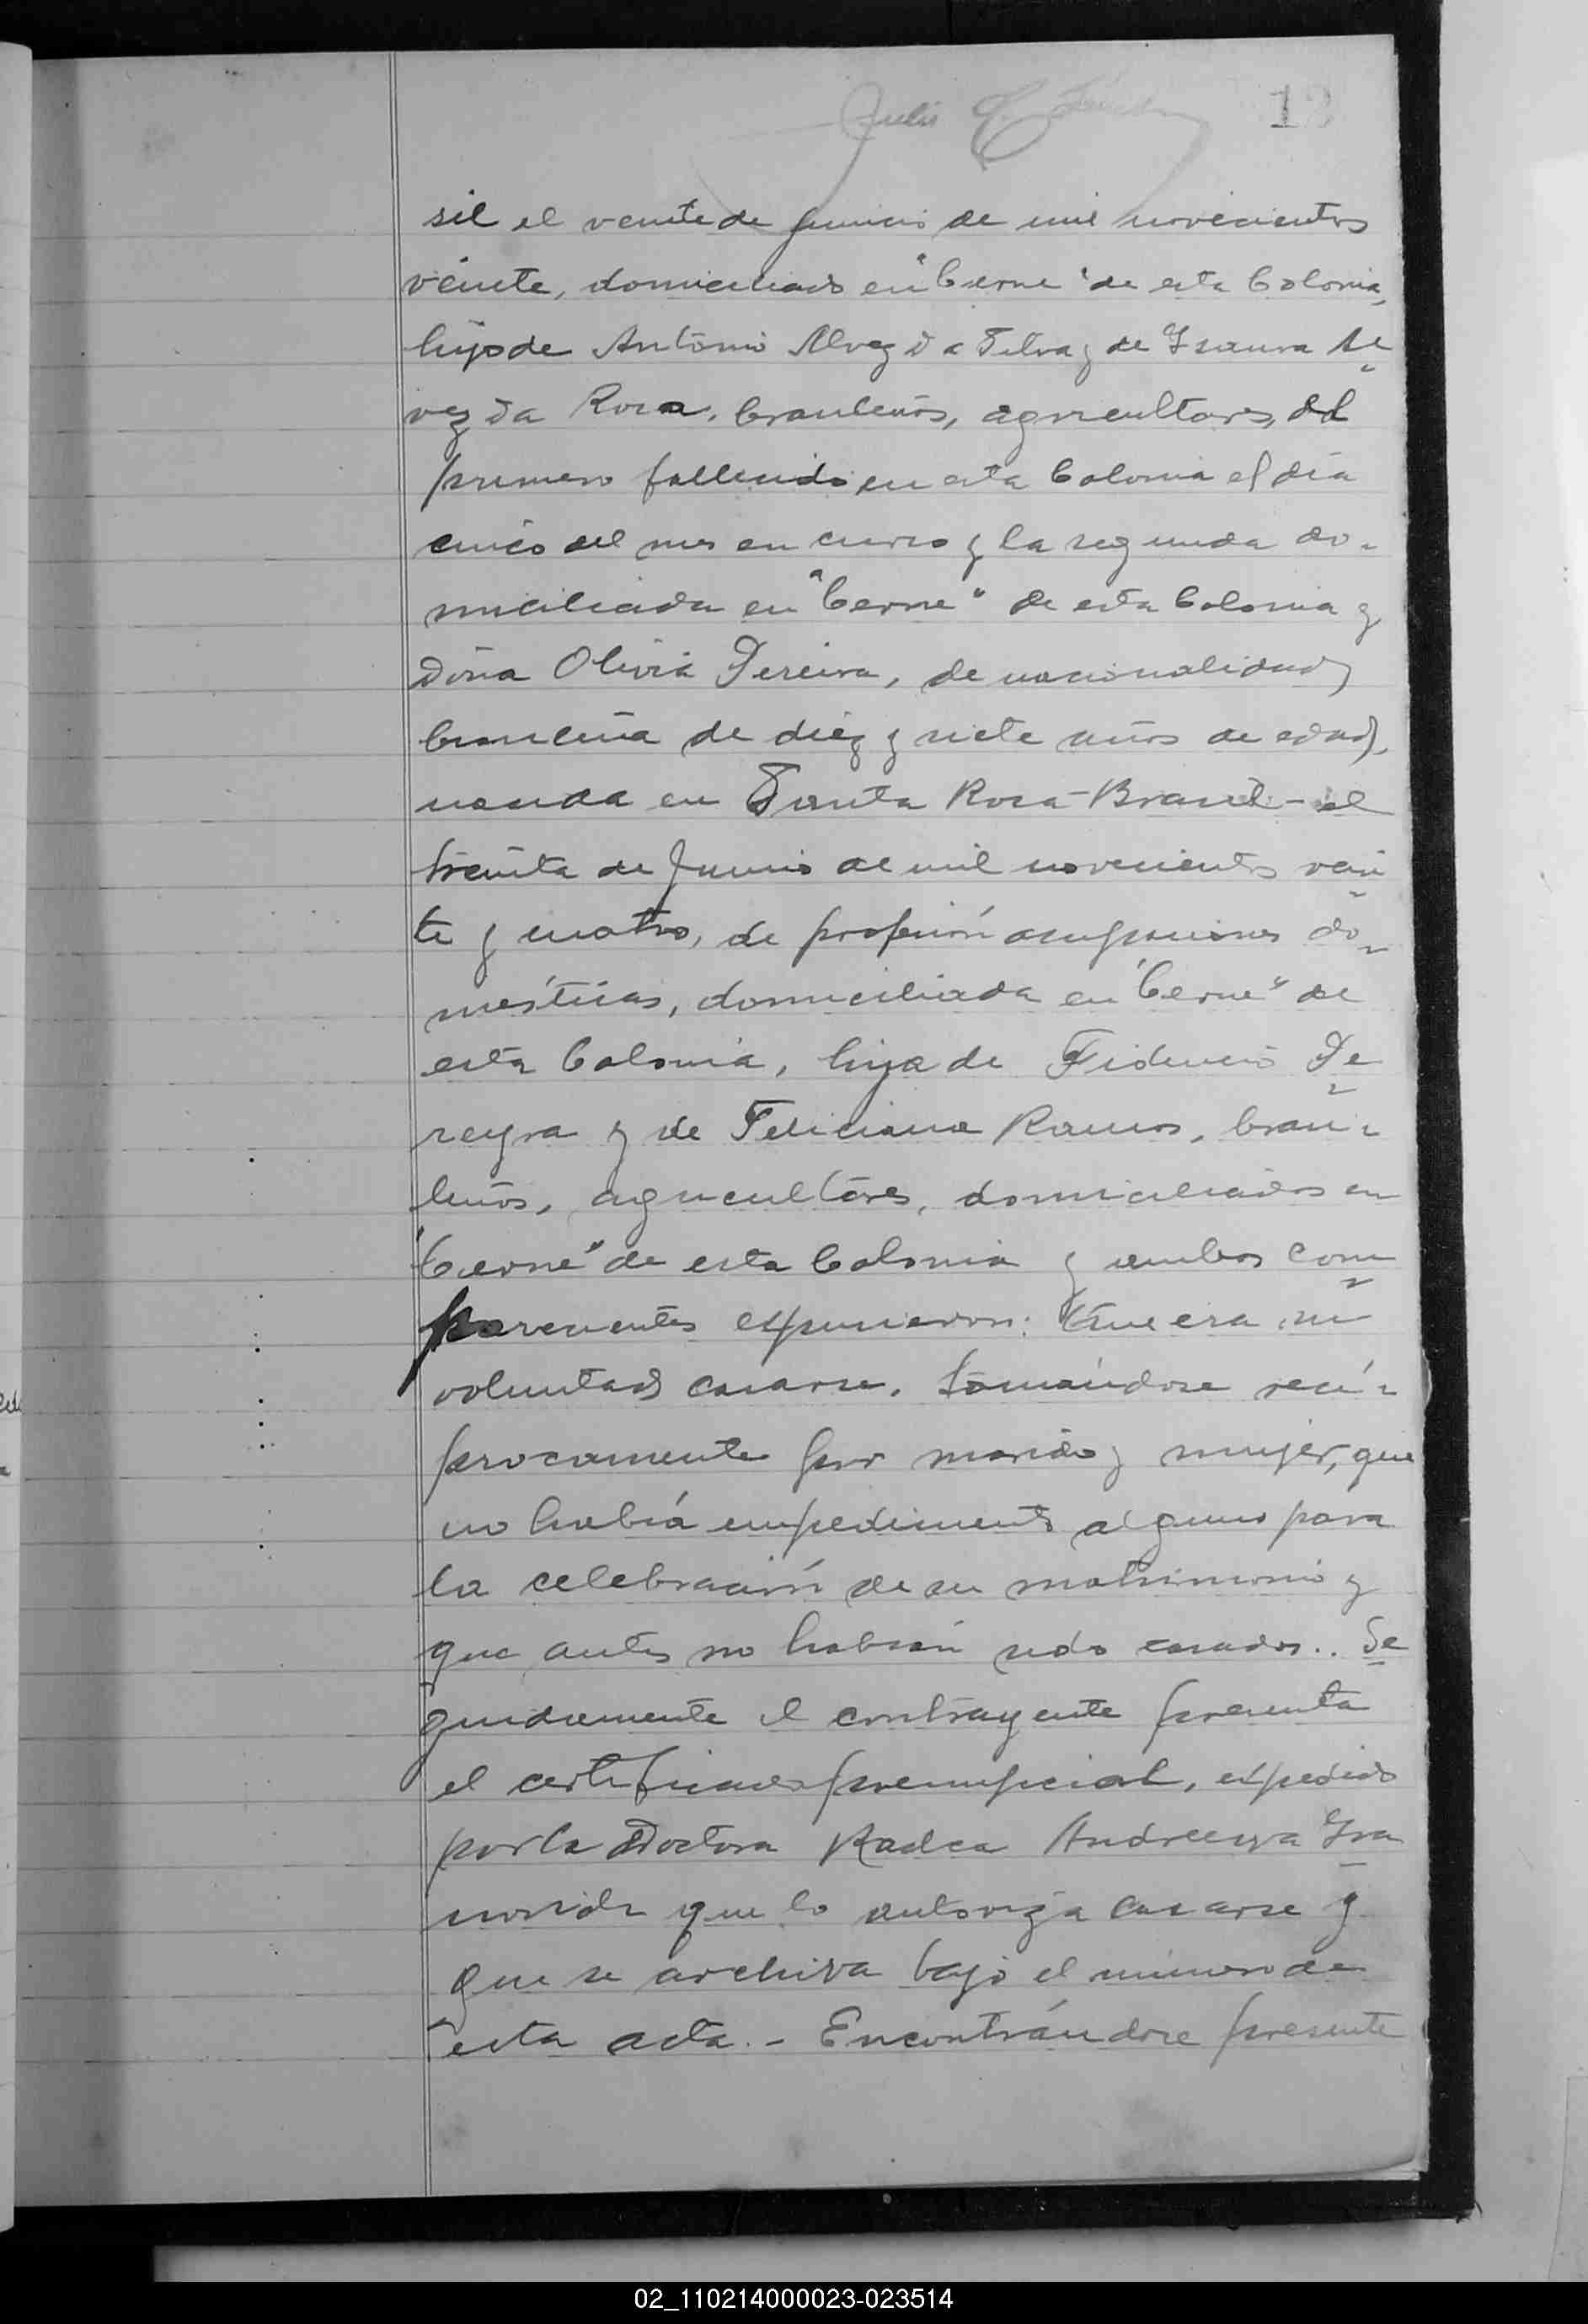 12
sil el veinte de Junio de mil novecientos
veinte, domiciliado en "Cerne" de esta Colonia,
hijo de Antonio Alvez Da Silva y de Isaura Al
vez Da Rosa, brasileños, agricultores, el
primero fallecido en esta Colonia el día
cinco del mes en curso y la segunda do-
miciliada en "Cerne" de esta Colonia y
Doña Olivia Pereira, de nacionalidad
brasileña de diez y siete años de edad,
nacida en Santa Rosa-Brasil- el
treinta de Junio de mil novecientos vein
te y cuatro, de profesión ocupaciones do-
mésticas, domiciliada en "Cerne" de
esta Colonia, hija de Fidencio Pe
reyra y de Feliciana Ramos, brasi-
leños, agricultores, domiciliados en
"Cerne" de esta Colonia y ambos com
parecientes expusieron: Que era su
voluntad casarse, tomándose recí-
procamente por marido y mujer, que
no había impedimento alguno para
la celebración de su matrimonio y
que antes no habían sido casados.. Se
guidamente el contrayente presenta
el certificado prenupcial, expedido
por la Doctora Radea Andreewa
que lo autoriza casarse y
que se archiva bajo el número de
esta acta.- Encontrándose presente
02_110214000023-023514